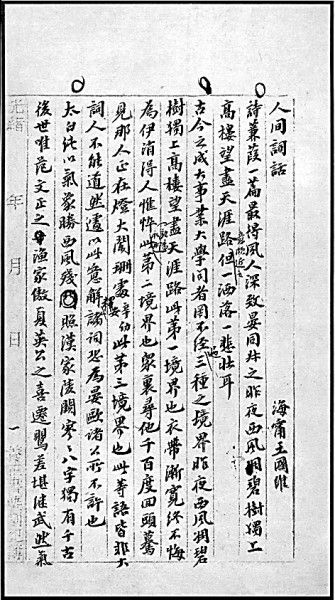 人间詞話
海甯王國維
詩蒹葭一篇最得風人深致晏同叔之昨夜西風凋碧樹獨上
高樓望盡天涯路意頗近之但一洒落一悲壯耳
古今之成大事業大學問者罔不經過三種之境界昨夜西風凋碧
樹獨上高樓望盡天涯路此第一境界也衣帶漸寬終不悔
為伊消得人憔悴此第二境界也眾裏尋他千百度回頭驀
見那人正在燈火闌珊處此第三境界也此等語皆非大
詞人不能道然遽以此意解釋諸詞恐為晏歐諸公所不許也
太白純以氣象勝西風殘照漢家陵闕寥寥八字獨有千古
後世唯范文正之漁家傲夏英公之喜遷鶯差堪繼武然氣
光緒 年 月 日
一